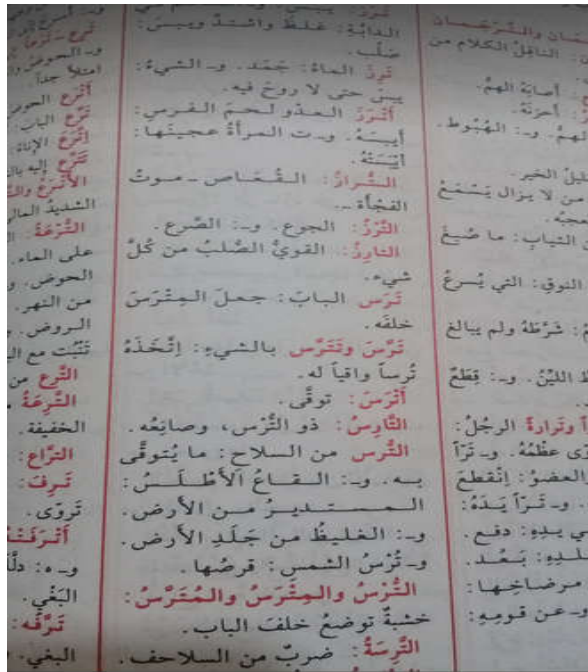 ـمَان والتُّرْجَمان
: الناقِلُ الكلامِ من
: أصابَهُ الهمُّ.
: أحزنَهُ.
الهمُّ. وـ: الهُبُوط.
ـليلُ الخير.
من لا يزال يَسْمَعُ
ـعجبُه.
الثيابِ: ما صُبِغَ
النوقِ: التي يُسرعُ
: شَرَطَهُ ولم يبالغ
اللينُ. وـ: قِطَعٌ
وتَرارةً الرجُلُ:
ـرّى عظْمُهُ. وـ تَرّاً
والعضوُ: اِنْقطعَ
. وـ تَـرّاً يَـدَهُ:
ـي يدِهِ: دفع.
ـلـدِهِ: بَـعُـد.
مرضاخِـهـا:
وـ عن قومِهِ:
الدابّةُ: غلظَ واشتدَّ ويبسَ:
صَلُب.
تَرِزَ الماءُ: جَمَد. وـ الشيءُ:
يبسَ حتى لا روحَ فيه.
أتْرَزَ العـدْو لـحـمَ الفـرسِ:
أيبسَهُ. وـت المرأةُ عجينَها:
أيْبَسَتْهُ.
التُّـرازُ: القُـعَـاص ـ مـوتُ
الفجْأة ـ.
التَّرَزُ: الجوع. وـ: الصَّرع.
التارِزُ: القويُّ الصُّلبُ من كُلِّ
شيء.
تَرَس البابَ: جعلَ المِتْرَسَ
خلفَه.
تَرَّسَ وتَتَرَّس بالشيءِ: اِتَّخَذَهُ
تُرساً واقياً له.
أتْرَسَ: توقَّى.
التَّارِسُ: ذو التُّرْس، وصانِعُه.
التُّرس من السلاحِ: ما يُتوقَّى
بـه. وـ: القـاعُ الأطْـلَـسُ:
المـسـتـديـرُ مـن الأرض.
وـ: الغليظُ من جَلَدِ الأرض.
وـ تُرْسُ الشمسِ: قرصُها.
التُّرْسُ والمِتْرَسُ والمُتَرَّسُ:
خشبةٌ توضعُ خلفَ الباب.
التُّرسَةُ: ضربٌ من السلاحف.
وـ الحوضُ
امتلأَ جداً.
أتْرَعَ الحوضَ
تَرَّع البابَ:
اِتَّرَعَ الإناءُ:
تَتَرَّع إليه بال
الشديدُ المالئ
التُّرْعَةُ:
على الماء.
الحوض. و
من النهر.
الروض.
تَنْبُت مع ال
التَّرِع من
التَّرِعَةُ
الخفيفة.
التراع:
تَـرِفَ:
تَروّى.
أتْرَفَتْـهُ
وـ ه: دلَّلَـ
البَغْي.
تَرَّفَه:
البغي.